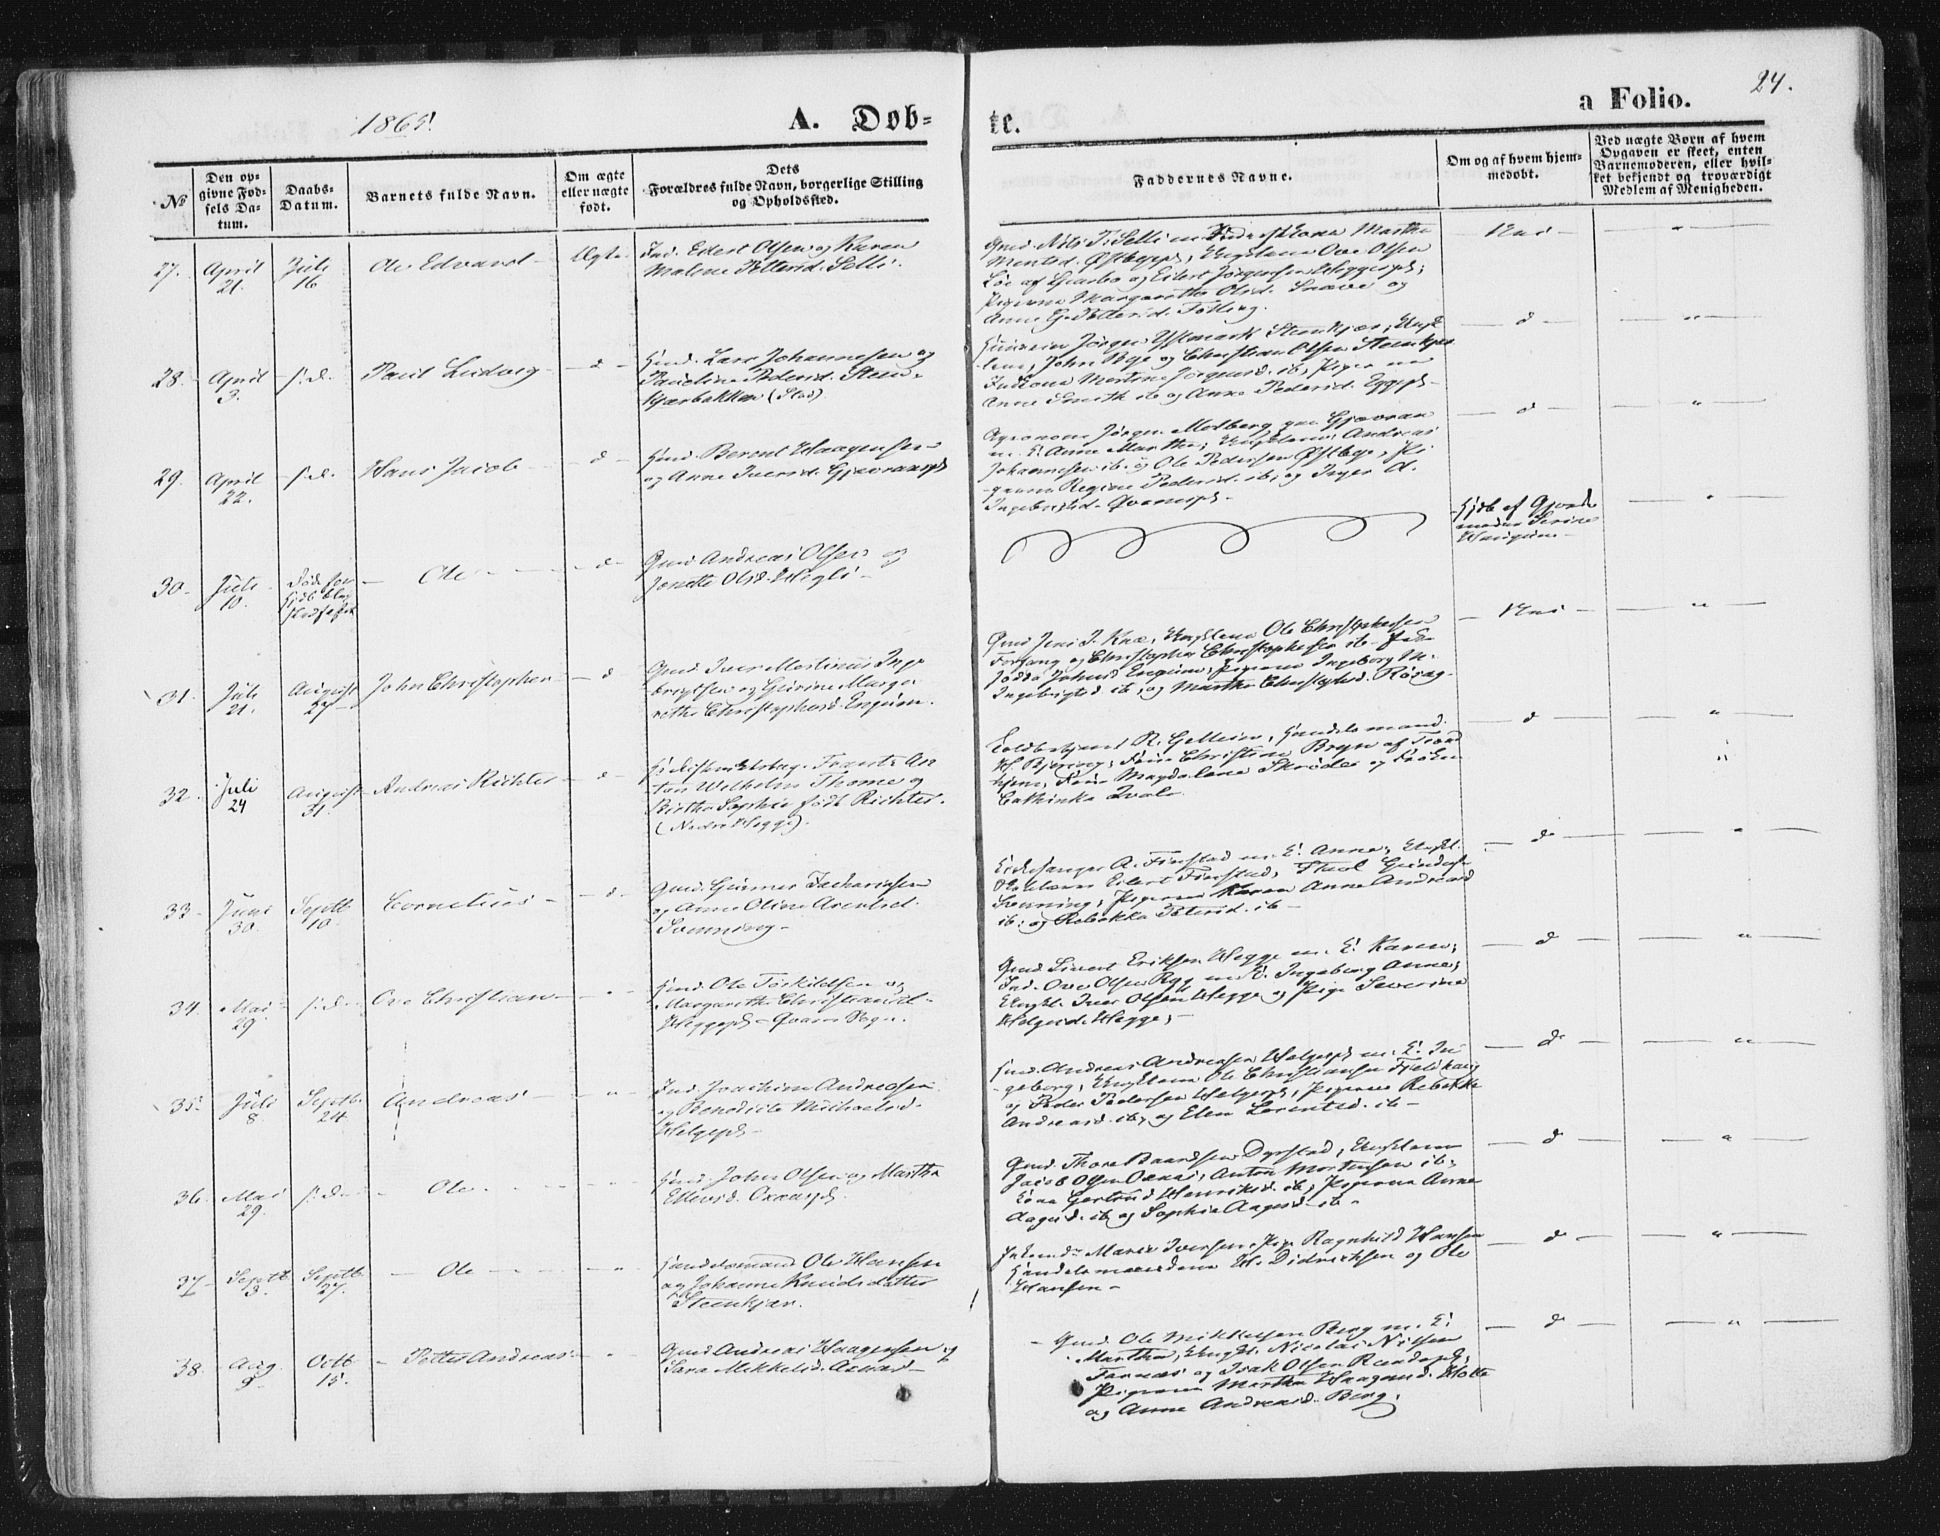 1865.
A. Døb-
te.
a Folio.
24.
№
Den op-
givne Fød-
sels Da-
tum.
Daabs-
Datum.
Barnets fulde Navn.
Om ægte
eller uægte
født.
Dets
Forældres fulde Navn, borgerlige Stilling
og Opholdssted.
Faddernes Navne.
Om og af hvem hjem-
medøbt.
Ved uægte Børn af hvem
Opgaven er skeet, enten
Barnemoderen, eller hvil-
ket bekjendt og troværdigt
Medlem af Menigheden.
27.
April
21.
Juli
16
Ole Edvard
Ægte
Ind. Edert Olsen og Karen
Malene Pettersd. Selli.
Martha
Østbyepl; Ungkarlene Ove Olsen
Løe af Sparbo og Eilert Jørgensen Heggespl;
Pigerne Margaretha Olsd. Snave og
Anne G. Pedersd. Følling.
Nei
28.
April
3.
s. d.
Paul Ludvig
d
Hmd. Lars Johannesen og
Pauline Pedersd. Steen-
kjærbakken (Stod)
Jørgen Ystmark Steenkjær; Ungk
John Bye og Christian Olsen Steenkjær
Inkone Martine Jørgensd. ib, Pigerne
Anne Smith ib og Anne Pedersd. Eggepl
d
29.
April
22.
s. d.
Hans Jacob
d
Hmd. Berent Haagensen
og Anne Iversd. Gjævranspl
Agronom Jørgen Melberg
m. E. Anne Martha; Ungkarlene Andreas
Johannesen ib. og Ole Pedersen Østbye; Pi-
gerne Regine Pedersd. ib; og Inger A.
Ingebrigtsd. Qvamspl
d
30.
Juli
10.
Død før
Ole
d
Gmd. Andreas Olsen og
Jonetta Olsd. Hegli
Hjdb af Gjorde-
moder Serine
31.
Juli
21.
August
27
John Christopher
d
Gmd. Iver Martinus Inge-
brigtsen og Gurine Marga-
retha Christophersd. Enguin.
Gmd. Jens J. Kne, Ungklene Ole Christophersen
Forfang og Christopher Christophersen ib
Enguin, Pigerne Ingeborg M.
Ingebrigtsd ib; og Martha Christophersd. Røisag
Nei
32.
Juli
24
August
31.
Andreas Richter
d
Frants An-
ton Wilhelm Thome og
Birtha Sophie født Richter.
(Nedre Hegge).
R. Gelleim, Handelsmand
H. Bjøring; Frue Christine Bryn af Trond-
hjem, Frue Magdalena Skrøder og Frøken
Cathinka Qvale
d
33
Juni
30.
Septb
10.
Cornelius
d
Gmd. Gunner Zachariasen
og Anne Oline Arentsd.
Svenning
Kirkesanger A. Finstad m. E. Anne; Ungk.
Eilert Finstad,
Svenning; Pigerne Karen Anne Andreasd
ib. og Rebekka Petersd. ib
d
34.
Mai
29.
s. d.
Ove Christian
Hmd. Ole Torkildsen og
Margaretha Christiansd.
Heggepl Qvams Sogn.
Gmd. Sivert Eriksen Hegge m. E. Karen;
Ind. Ove Olsen Rygg m. E. Ingeborg Anne;
Ungk. Iver Olsen Hegge og Pige Severine
Helgesd. Hegge;
d
35.
Juli
8.
Septb
24
Andreas
Ind. Joachim Andreasen
og Benedicte Michaelsd.
Helgepl
Hmd. Andreas Andreasen Helgepl m. E. In-
geborg; Ungklene Ole Christiansen Fjeldhaug
og Peder Pedersen Helgepl; Pigerne Rebekka
Andreasd. ib, og Elen Lorentsd. ib
d
36.
Mai
29.
s. d.
Ole
Hmd. John Olsen og Martha
Ellevsd. Oxnaspl.
Gmd. Thore Baardsen Dyrstad; Ungklene
Jacob Olsen Oxnas, Anton Mortensen ib;
Kone Gertrud Henriksd. ib; Pigerne Anne
Aagesd. ib og Sophia Aagesd. ib
d
37
Septb
3.
Septb
27.
Ole
Handelsmand Ole Hansen
og Johanne Knudsdatter
Steenkjær.
Marie Iversen, Pige Ragnhild Hansen
Handelsmændene H. Didriksen og Ole
Hansen
d
38.
Aug
9
Octb
15.
Petter Andreas
Gmd. Andreas Haagensen og
Sara Mikkelsd.
Gmd. Ole Mikkelsen Berg m. E.
Martha, Ungk. Nicolai Nilsen
Farnæs og Isak Olsen
Pigerne Martha Haagensd. Holte
og Anne Andreasd. Berg.
d